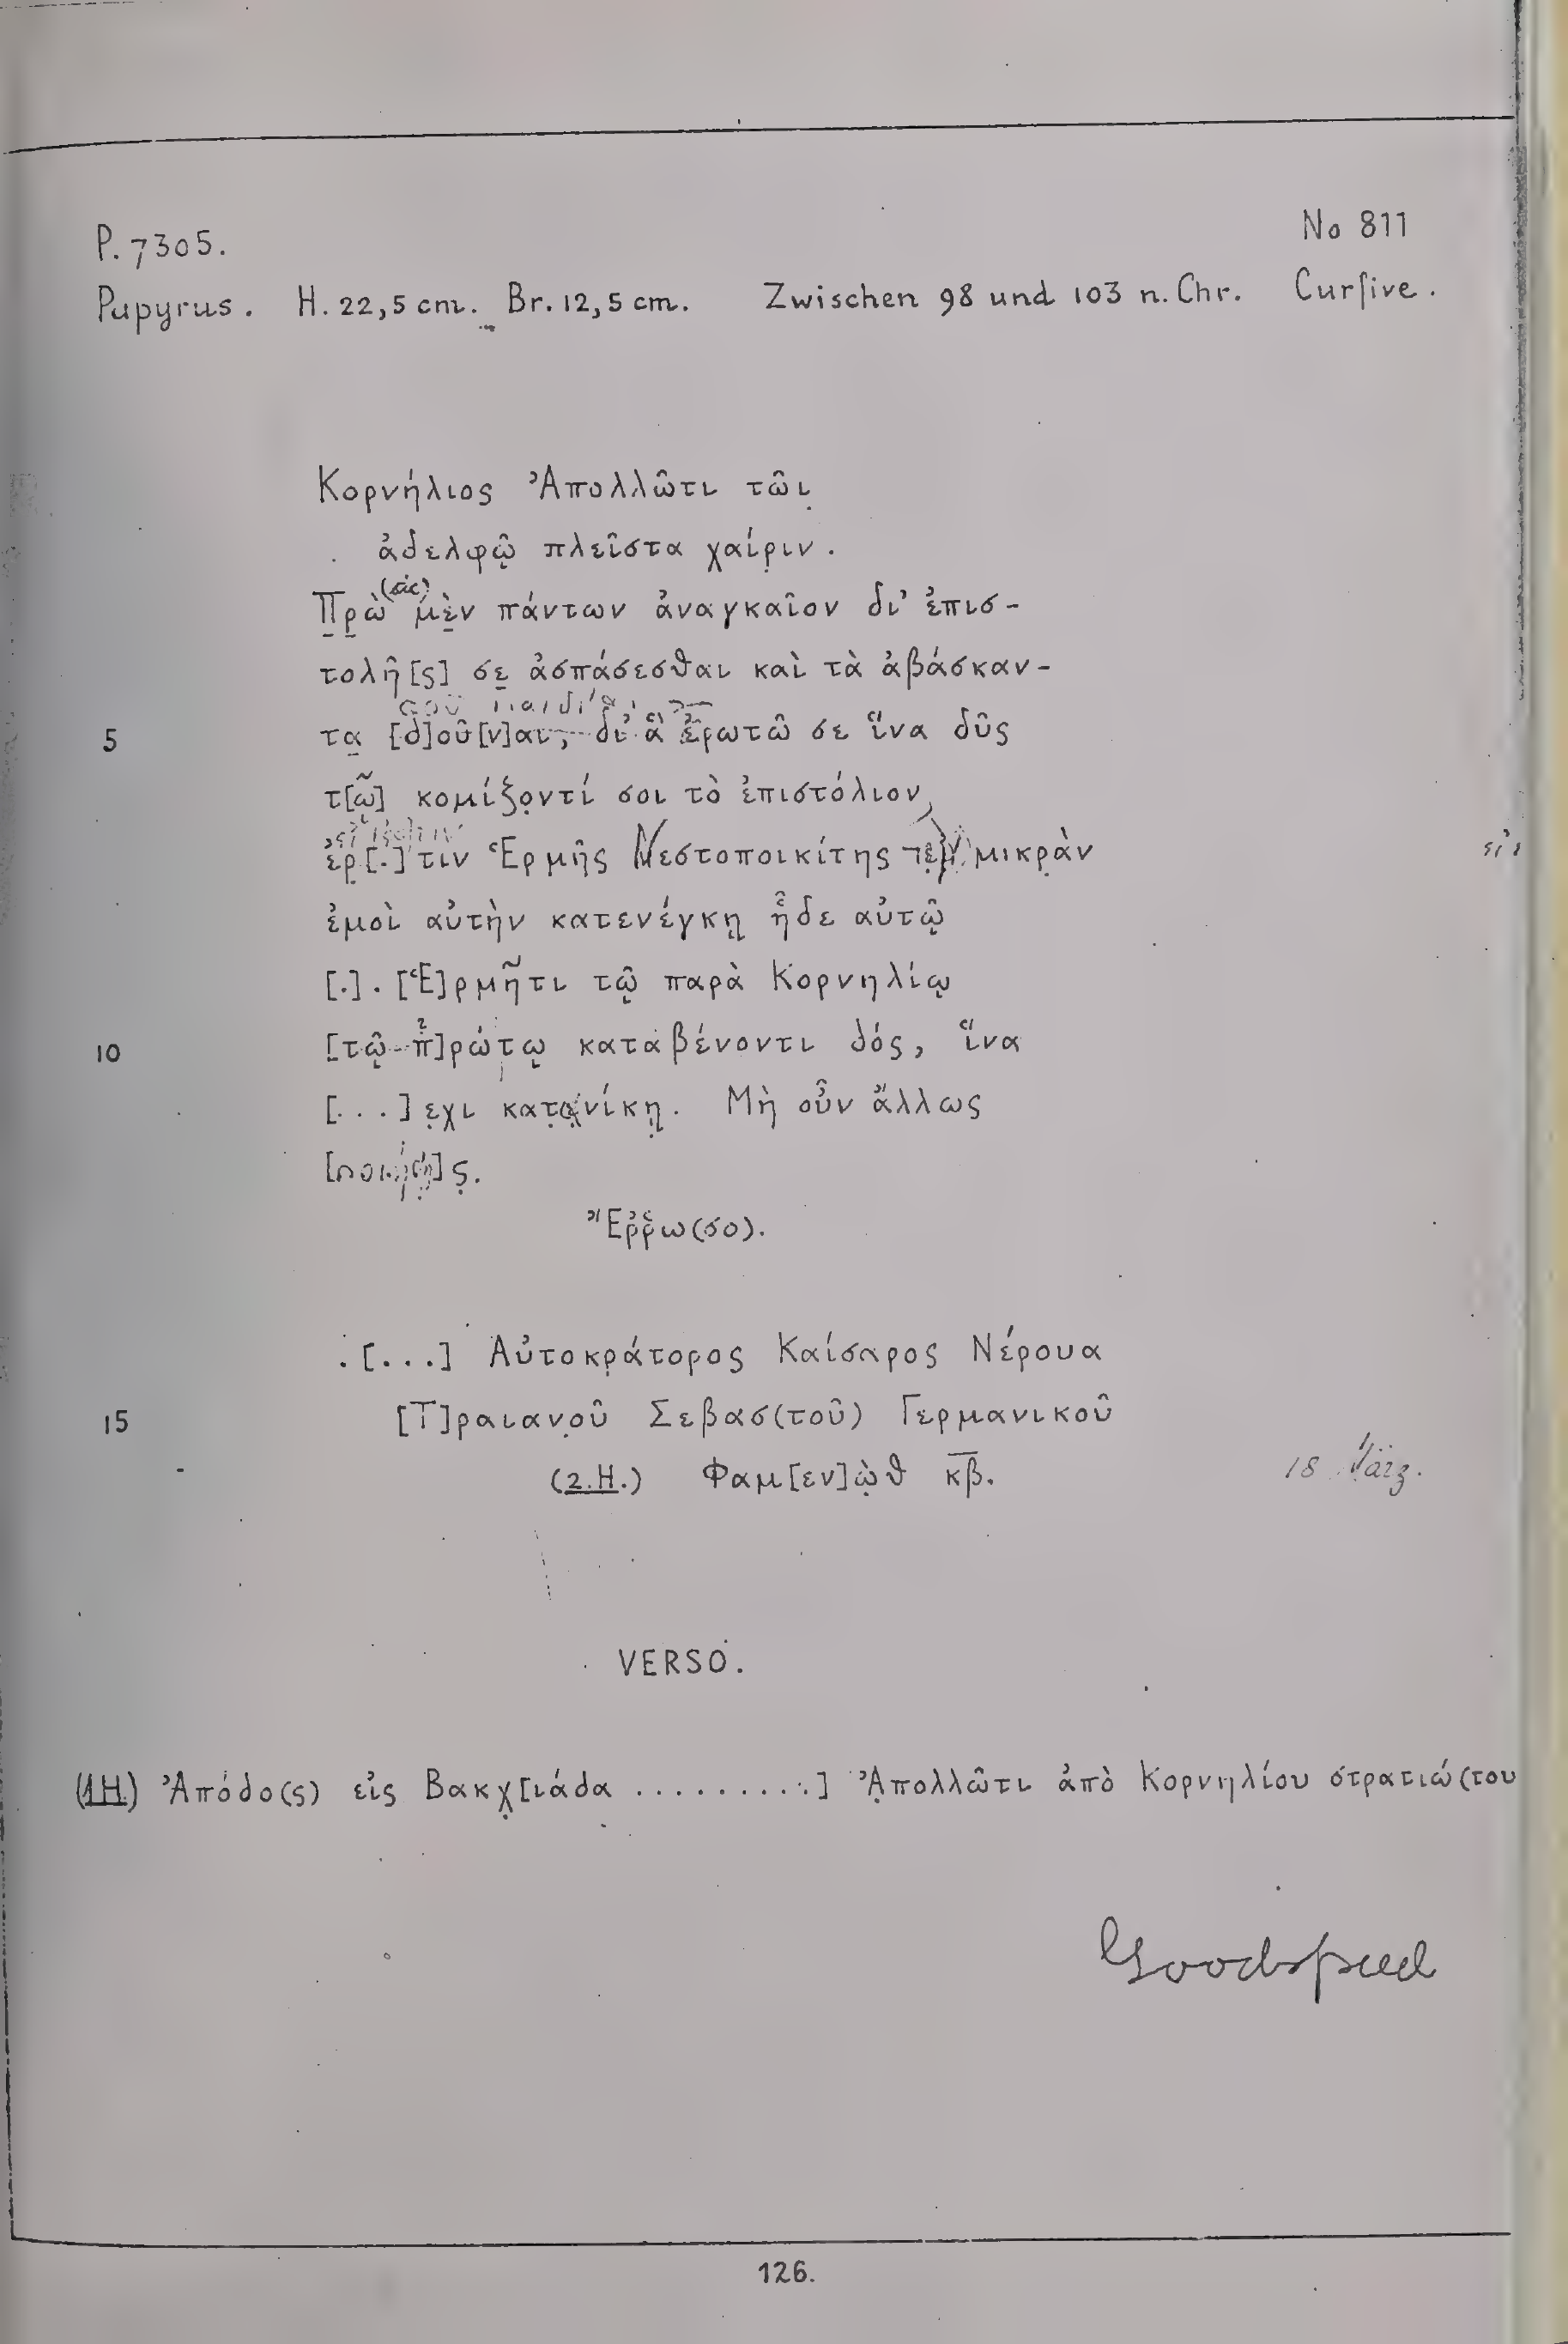 No 811
P. 7305.
Papyrus. H. 22,5 cm. Br. 12,5 cm. Zwischen 98 und 103 n. Chr. Curſive.
Κορνήλιος Ἀπολλῶτι τῶι
ἀδελφῷ πλεῖστα χαίριν.
(sic)
Πρὼ μὲν πάντων ἀναγκαῖον δι' ἐπισ-
τολῆ[ς] σε ἀσπάσεσθαι καὶ τὰ ἀβάσκαν-
σοῦ παιδία
5 τα [δ]οῦ[ν]αι, δι' ἃ ἐρωτῶ σε ἵνα δῦς
τ[ῷ] κομίζοντί σοι τὸ ἐπιστόλιον,
ἐρ[.]τιν Ἑρμῆς Νεστοποικίτης μικρὰν
ἐμοὶ αὐτὴν κατενέγκῃ ἦδε αὐτῷ
[.] . [Ἑ]ρμῆτι τῷ παρὰ Κορνηλίῳ
10 [τῷ π]ρώτῳ καταβένοντι δός, ἵνα
[...]εχι κατανίκῃ. Μὴ οὖν ἄλλως
[ποιή]ς.
Ἔρρω(σο).
. [...] Αὐτοκράτορος Καίσαρος Νέρουα
15 [Τ]ραιανοῦ Σεβασ(τοῦ) Γερμανικοῦ
(2.H.) Φαμ[εν]ὼθ κβ. 18 März.
VERSO.
(1H) Ἀπόδο(ς) εἰς Βακχ[ιάδα .........] Ἀπολλῶτι ἀπὸ Κορνηλίου στρατιώ(του
Goodspeed
126.